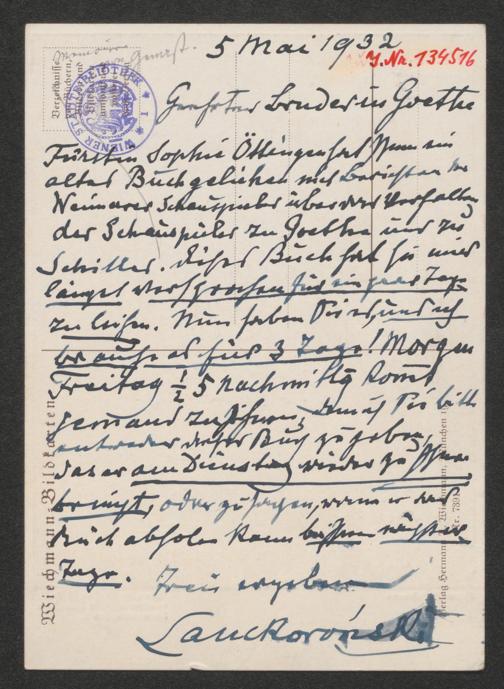 5 Mai 1932
J. Nr. 134516
WIENER STADTBIBLIOTHEK
I
Geehrter Bruder in Goethe
Fürstin Sophie Öttingen hat Ihnen ein
altes Buch geliehen mit Berichten der
Weimarer Schauspieler über das Verhalten
der Schauspieler zu Goethe und zu
Schiller. Dieses Buch hat sie mir
längst versprochen für ein paar Tage
zu leihen. Nun haben Sie es, und ich
brauche es für 3 Tage! Morgen
Freitag ½ 5 nachmittg kommt
jemand zu Ihnen, dem ich Sie bitte
entweder dieses Buch zu geben,
das er am Dienstag wieder zu Ihnen
bringt, oder zu sagen, wann er das
Buch abholen kann binnen nächster
Tage. Treu ergeben
Lanckoroński
Wiechmann-Bildkarten
Verlag Hermann A. Wiechmann, München
Nr. 7891